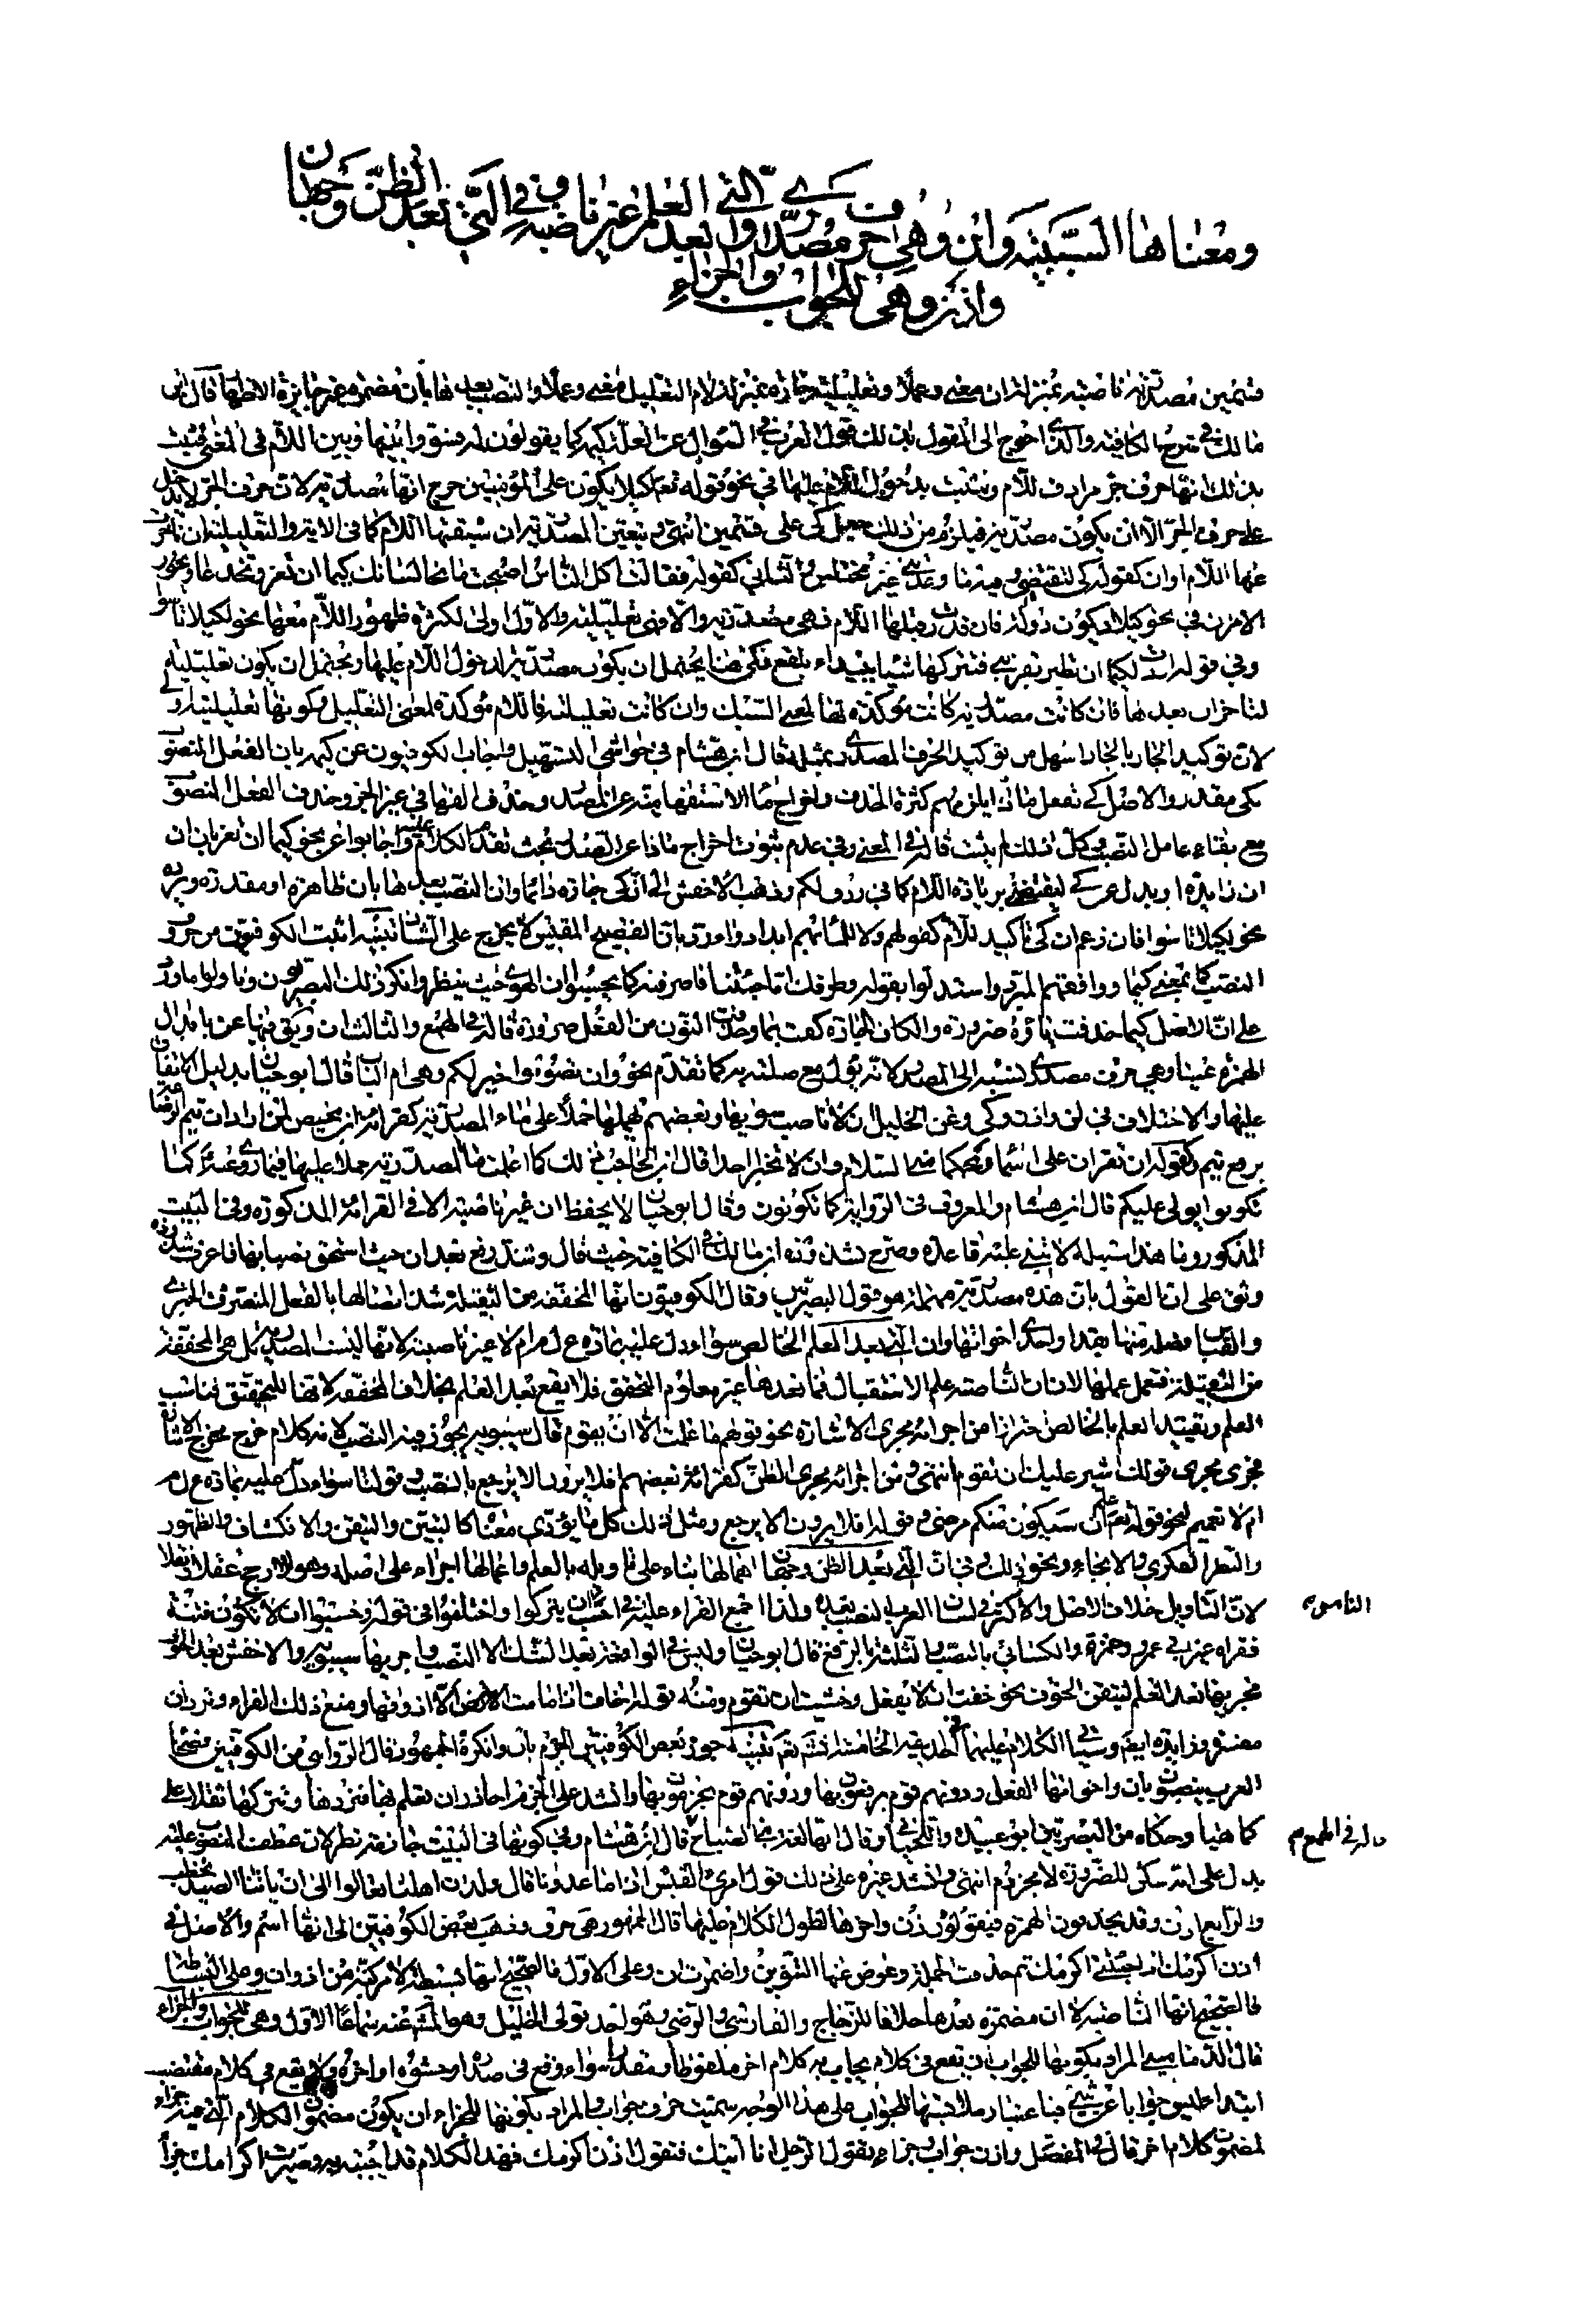 ومعناها السببية وان وهي حرف مصدري والتي بعد العلم غير ناصبة وفي التي بعد الظن وجهان
واذن وهي للجواب والجزاء
مصدرية ناصبة بمنزلة ان معنى وعملا وتعليلية جارة بمنزلة لام التعليل معنى وعملا والنصب بعدها بان مضمرة غير جايزة الاظهار قال ابن
مالك في شرح الكافية والذي احوج الى القول بذلك قول العرب في السؤال عن العلة كيمه كما يقولون لمه فسووا بينها وبين اللام في المعنى فثبت
بذلك انها حرف جر مرادف للام وثبت بدخول اللام عليها في نحو قوله تعالى كيلا يكون على المؤمنين حرج انها مصدرية لان حرف الجر لا يدخل
على حرف الجر الا ان يكون مصدرية فيلزم من ذلك جعل كي على قسمين انتهى وتتعين المصدرية ان سبقتها اللام كما في الاية والتعليلية ان تاخرت
عنها اللام او ان كقوله كي لتقضيني رقية ما وعدتني غير مختلس والثاني كقوله فقالت اكل الناس اصبحت مانحا لسانك كيما ان تغر وتخدعا ويجوز
الامران في نحو كيلا يكون دولة فان قدرت قبلها اللام فهي مصدرية والا فهي تعليلية والاول اولى لكثرة ظهور اللام معها نحو لكيلا تاسوا
وفي قوله اردت لكيما ان تطير بقربتي فتتركها شنا ببيداء بلقع فكي هنا يحتمل ان يكون مصدرية لدخول اللام عليها ويحتمل ان يكون تعليلية
لتاخر ان بعدها فان كانت مصدرية كانت مؤكدة لها لمعنى السبك وان كانت تعليلية فاللام مؤكدة لمعنى التعليل وكونها تعليلية اولى
لان توكيد الجار بالجار اسهل من توكيد الحرف المصدري بمثله قال ابن هشام في حواشي التسهيل واجاب الكوفيون عن كيمه بان الفعل المنصوب
بكي مقدر والاصل كي تفعل ماذا ويلزمهم كثرة الحذف واخراج ما الاستفهامية عن الصدر وحذف الفها في غير الجر وحذف الفعل المنصوب
مع بقاء عامل النصب وكل ذلك لم يثبت قاله في المغني وفي عدم ثبوت اخراج ماذا عن الصدر بحث تقدم الكلام عليه واجابوا عن نحو كيما ان تغر بان
ان زايدة او بدل من كي لتقضيني بزيادة اللام كما في ردف لكم وذهب الاخفش الى ان كي جارة دائما وان النصب بعدها بان ظاهرة او مقدرة ويرده
نحو لكيلا تاسوا فان زعم ان كي تاكيد للام كقولهم ولا للما بهم ابدا دواء رد بان الفصيح المقيس لا يخرج على الشاذ تنبيه اثبت الكوفيون من حروف
النصب كما بمعنى كيما ووافقهم المبرد واستدلوا بقوله وطرفك اما جئتنا فاصرفنه كما يحسبوا ان الهوى حيث ينظر وانكر ذلك البصريون وتاولوا ما ورد
على ان الاصل كيما حذفت ياؤه ضرورة والكاف الجارة كفت بما وحذفت النون من الفعل ضرورة قاله في الهمع والثالث ان ويكنى عنها عن بابدال
الهمزة عينا وهي حرف مصدري نسبة الى المصدر لانه يؤل مع صلته به كما تقدم نحو وان تصوموا خير لكم وهي ام الباب قال ابو حيان بدليل الاتفاق
عليها والاختلاف في لن واذن وكي وعن الخليل ان لا ناصب سواها وبعضهم يهملها حملا على ماء المصدرية كقراءة ابن محيصن لمن اراد ان يتم الرضاعة
برفع يتم وكقوله ان تقران على اسماء ويحكما مني السلام وان لا تخبرا احدا قال ابن الحاجب في ذلك كما اعملت ما المصدرية حملا عليها فيما روى كما
تكونوا يولى عليكم قال ابن هشام والمعروف في الرواية كما تكونون وقال ابو حيان لا يحفظ ان غير ناصبة الا في القراءة المذكورة وفي البيت
المذكور وما هذا سبيله لا ينبني عليه قاعدة وصرح بشذوذه ابن مالك في الكافية حيث قال وشذ رفع بعد ان حيث استحق نصبا بها فاعرف شذوذه
وثق على ان القول بان هذه مصدرية مهملة هو قول البصريين وقال الكوفيون انها المخففة من الثقيلة شذ اتصالها بالفعل المتصرف الخبري
والقياس فصله منها بقد او احدى اخواتها وان التي بعد العلم الخالص سواء دل عليه بمادة ع ل م ام لا غير ناصبة لانها ليست المصدرية بل هي المخففة
من الثقيلة فتعمل عملها لان ان الناصبة علم الاستقبال فما بعدها غير معلوم التحقق فلا يقع بعد العلم بخلاف المخففة لانها للتحقيق فناسب
العلم وتقييد العلم بالخالص احترازا من اجرائه مجرى الاشارة نحو قولهم ما علمت الا ان يقوم قال سيبويه يجوز فيه النصب لانه كلام خرج مخرج الاشارة
فجرى مجرى قولك اشير عليك ان تقوم انتهى ومن اجرائه مجرى الظن كقراءة بعضهم افلا يرون الا يرجع بالنصب وقولنا سواء دل عليه بمادة ع ل م
ام لا تعميم لنحو قوله تعالى علم ان سيكون منكم مرضى وقوله افلا يرون الا يرجع ومثل ذلك كل ما يؤدي معناه كالتبين والتيقن والانكشاف والظهور
والنظر الفكري والايحاء ونحو ذلك وفي ان التي بعد الظن وجهان اهمالها بناء على تاويله بالعلم واعمالها اجراء على اصله وهو الارجح عقلا ونقلا
لان التاويل خلاف الاصل والاكثر في لسان العرب النصب بعده ولذا اجمع القراء عليه في احسب ان يتركوا واختلفوا في قوله وحسبوا ان لا تكون فتنة
فقراه غير ابي عمرو وحمزة والكسائي بالنصب والثلثة بالرفع قال ابو حيان وليس في الواقعة بعد الشك الا النصب واجريها سيبويه والاخفش بعد الخوف
مجريها بعد العلم لتيقن المخوف نحو خفت ان لا يفعل وخشيت ان تقوم ومنه قوله اخاف اذا ما مت ان لا اذوقها ومنع ذلك الفراء وترد ان
مفسرة وزايدة ايضا وسياتي الكلام عليهما في الحديقة الخامسة انشاء الله تعالى تنبيه جوز بعض الكوفيين الجزم بان وانكره الجمهور قال الرؤاسي من الكوفيين فصحاء
العرب ينصبون بان واخواتها الفعل ودونهم قوم يرفعون بها ودونهم قوم يجزمون بها وانشد على الجزم احاذر ان تعلم بها فتردها وتتركها ثقلا علي
كما هيا وحكاه من البصريين ابو عبيدة واللحياني وقال انها لغة بني صباح قال ابن هشام وفي كونها في البيت جازمة نظر لان عطف المنصوب عليه
يدل على انه سكن للضرورة لا مجزوم انتهى وانشد غيره على ذلك قول امرئ القيس اذا ما غدونا قال ولدان اهلنا تعالوا الى ان ياتنا الصيد نحطب
والرابع اذن وقد يحذفون الهمزة فيقولون ذن واخرها لطول الكلام عليها قال الجمهور هي حرف وذهب بعض الكوفيين الى انها اسم والاصل في
اذن اكرمك اذا جئتني اكرمك ثم حذفت الجملة وعوض عنها التنوين واضمرت ان وعلى الاول فالصحيح انها بسيطة لا مركبة من اذ وان وعلى البساطة
فالصحيح انها الناصبة لا ان مضمرة بعدها خلافا للزجاج والفارسي والرضي وهو احد قولي الخليل وهو المشهور عنه سماعا الاول وهي للجواب والجزاء
قال الدماميني المراد بكونها للجواب ان تقع في كلام يجاب به كلام اخر ملفوظا او مقدرا سواء وقع في صدره او حشوه او اخره ولا يقع في كلام مقتضب
ابتداء ليس جوابا عن شيء فباعتبار ملابستها للجواب على هذا الوجه سميت حرف جواب والمراد بكونها للجزاء ان يكون مضمون الكلام التي هي فيه جزاء
لمضمون كلام اخر قال في المفصل واذن جواب وجزاء يقول الرجل انا اتيك فتقول اذن اكرمك فهذا الكلام قد اجبته به وصيرت اكرامك جزاء